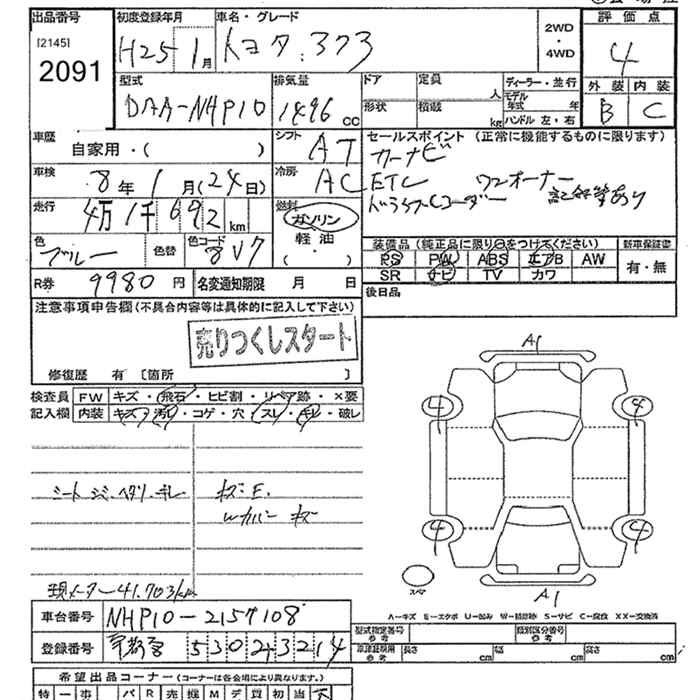 出品番号
[2145]
2091
初度登録年月
H25 1月
車名・グレード
トヨタ.373
2WD
・
4WD
評価点
4
外装 内装
B C
型式
DAA-NHP10
排気量
1496 cc
ドア
定員
人
形状
積載
kg
ディーラー・並行
モデル年式 年
ハンドル 左・右
車歴
自家用・( )
シフト
AT
セールスポイント (正常に機能するものに限ります)
カーナビ
ETC ワンオーナー
記録簿あり
車検
8年 1月(24日)
冷房
AC
走行
4万1千692km
燃料
ガソリン
軽油
( ・ )
色
ブルー
色替
色コード
8V7
装備品 (純正品に限り○をつけてください)
PS PW ABS エアB AW
SR ナビ TV カワ
新車保証書
有・無
R券 9980円
名変通知期限 月 日
後日品
注意事項申告欄(不具合内容等は具体的に記入して下さい)
売りつくしスタート
修復歴 有 [箇所 ]
検査員
記入欄
FW キズ・飛石・ヒビ割・リペア跡・×要
内装 キズ・汚れ・コゲ・穴・スレ・キレ・破レ
A1
4 4
シート シミ.ヘタリ.キレ
キズ.E.
Wカバー キズ
4 4
スペア
A1
現メーター41,703km
A=キズ E=エクボ U=凹み W=補修跡 S=サビ C=腐食 XX=交換済
車台番号 NHP10-2157108
登録番号 京都 530 3214
型式指定番号
参考
類別区分番号
参考
車検証使用
参考
長さ cm
幅 cm
高さ cm
希望出品コーナー(コーナーは各会場により異なります。)